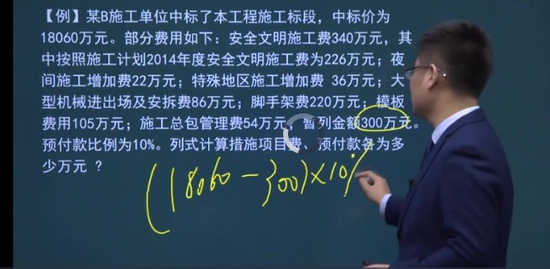 【例】某B施工单位中标了本工程施工标段，中标价为
18060万元。部分费用如下：安全文明施工费340万元，其
中按照施工计划2014年度安全文明施工费为226万元；夜
间施工增加费22万元；特殊地区施工增加费 36万元；大
型机械进出场及安拆费86万元；脚手架费220万元；模板
费用105万元；施工总包管理费54万元；暂列金额300万元。
预付款比例为10%。列式计算措施项目费、预付款各为多
少万元 ？
(18060-300)×10%